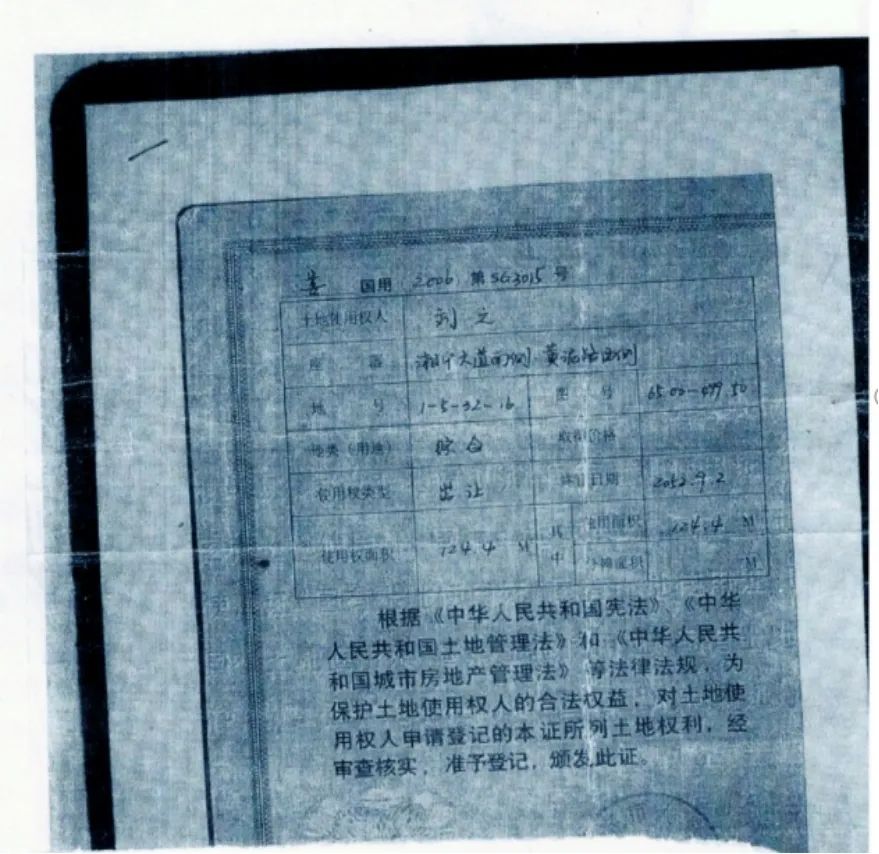 国用 2006 第SG3015号
土地使用权人 刘
座 落 大道西侧 黄泥 西侧
地 号 1-5-32-16 图 号 65.00-499.50
地类(用途) 综合 取得价格
使用权类型 出让 终止日期 2052.9.2
使用权面积 124.4 M 其中 独用面积 124.4 M
分摊面积 M
根据《中华人民共和国宪法》、《中华
人民共和国土地管理法》和《中华人民共
和国城市房地产管理法》等法律法规,为
保护土地使用权人的合法权益,对土地使
用权人申请登记的本证所列土地权利,经
审查核实,准予登记,颁发此证。